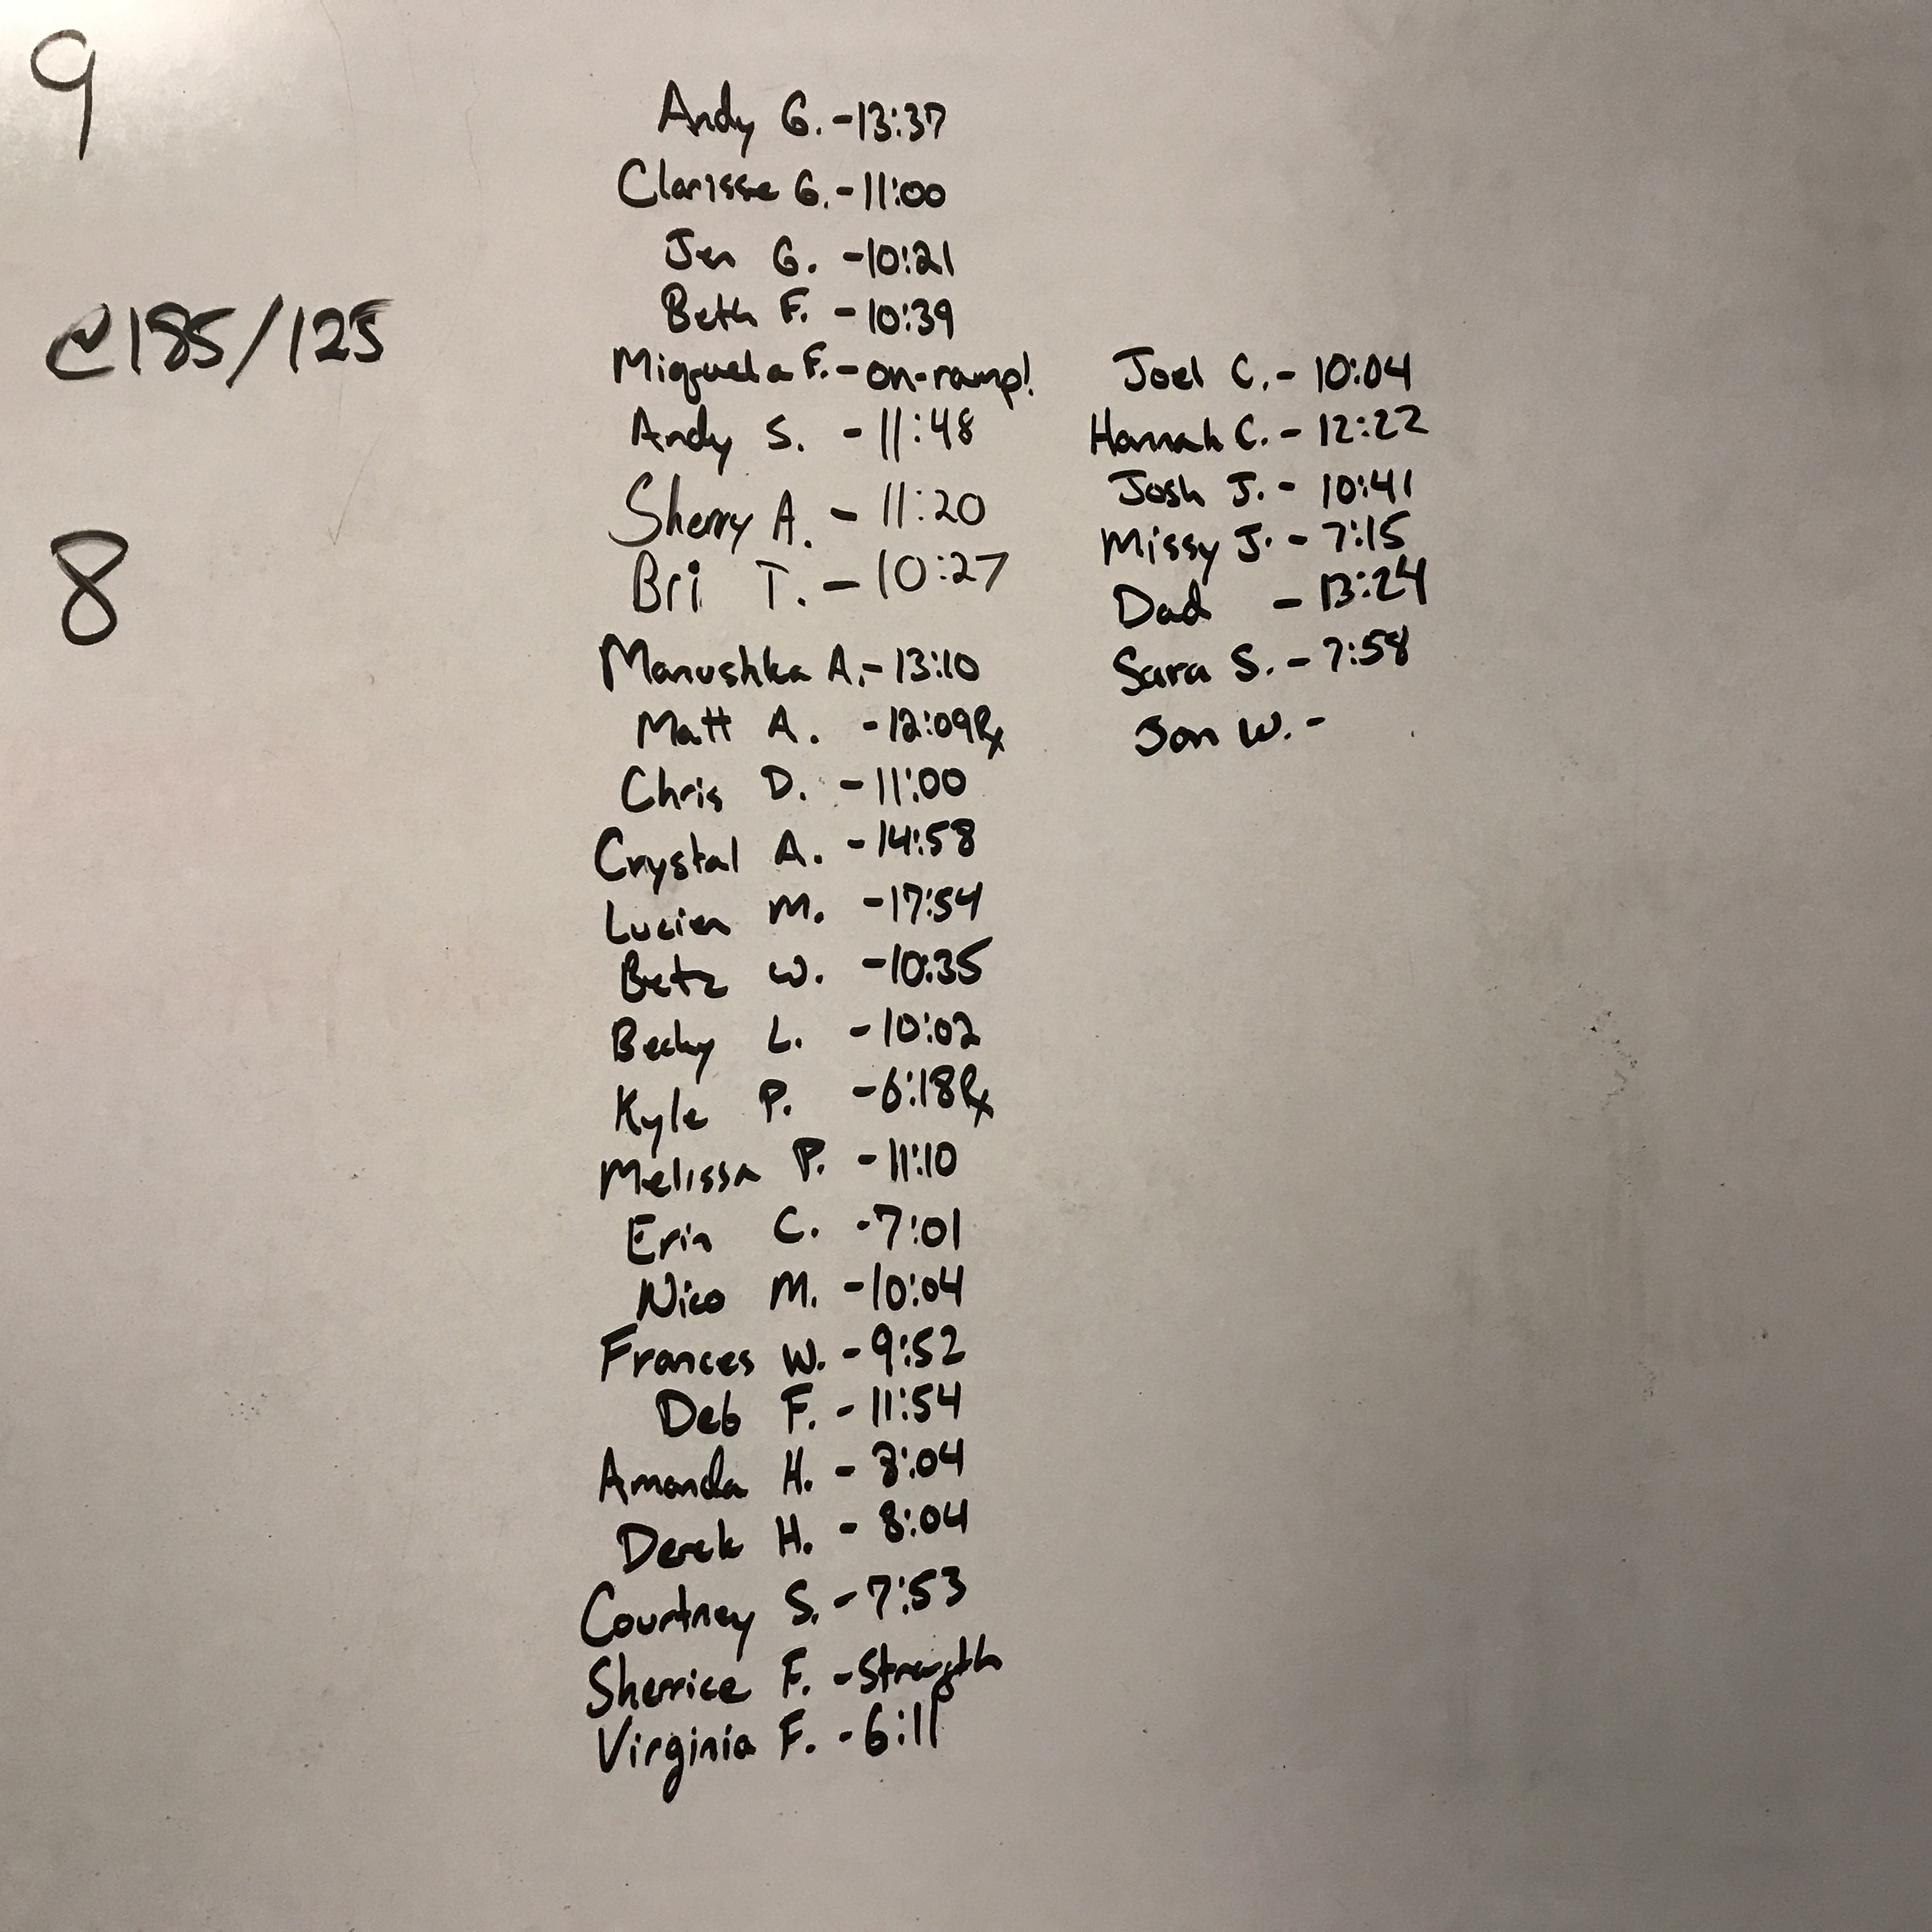 9
@185/125
8
Andy G. -13:37
Clarisse G. -11:00
Jen G. -10:21
Beth F. -10:39
Miquela F. -on-ramp!
Andy S. -11:48
Sherry A. - 11:20
Bri T. - 10:27
Manushka A. - 13:10
Matt A. -12:09 Rx
Chris D. -11:00
Crystal A. -14:58
Lucien M. -17:54
Betz W. -10:35
Becky L. -10:02
Kyle P. -6:18 Rx
Melissa P. -11:10
Erin C. -7:01
Nico M. -10:04
Frances W. - 9:52
Deb F. - 11:54
Amanda H. - 8:04
Derek H. - 8:04
Courtney S. - 7:53
Sherrice F. - Strength
Virginia F. - 6:11
Joel C. - 10:04
Hannah C. - 12:22
Josh J. - 10:41
Missy J. - 7:15
Dad - 13:24
Sara S. - 7:58
Jon W. -